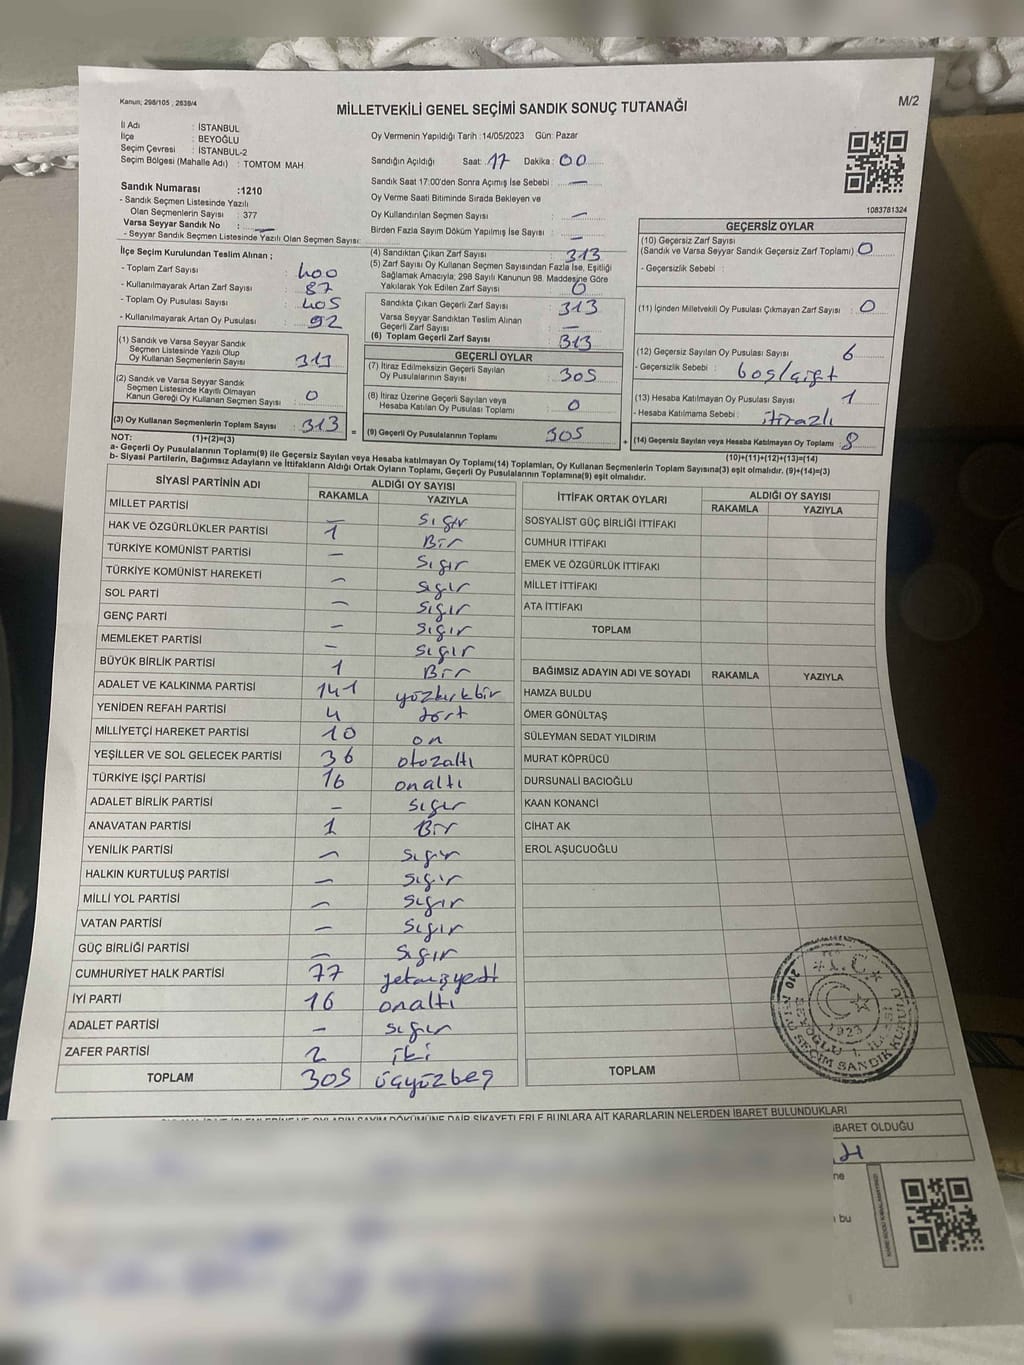 Kanun; 298/105 , 2839/4
MİLLETVEKİLİ GENEL SEÇİMİ SANDIK SONUÇ TUTANAĞI
M/2
İl Adı : İSTANBUL
İlçe : BEYOĞLU
Seçim Çevresi : İSTANBUL-2
Seçim Bölgesi (Mahalle Adı) : TOMTOM MAH.
Oy Vermenin Yapıldığı Tarih :14/05/2023 Gün: Pazar
Sandığın Açıldığı Saat: 17 Dakika: 00
Sandık Saat 17:00'den Sonra Açımış İse Sebebi : —
Oy Verme Saati Bitiminde Sırada Bekleyen ve
Oy Kullandırılan Seçmen Sayısı : —
Birden Fazla Sayım Döküm Yapılmış İse Sayısı : —
1083781324
Sandık Numarası :1210
- Sandık Seçmen Listesinde Yazılı
Olan Seçmenlerin Sayısı : 377
Varsa Seyyar Sandık No : —
- Seyyar Sandık Seçmen Listesinde Yazılı Olan Seçmen Sayısı:
İlçe Seçim Kurulundan Teslim Alınan ;
- Toplam Zarf Sayısı : 400
- Kullanılmayarak Artan Zarf Sayısı : 87
- Toplam Oy Pusulası Sayısı : 405
- Kullanılmayarak Artan Oy Pusulası : 92
(1) Sandık ve Varsa Seyyar Sandık
Seçmen Listesinde Yazılı Olup
Oy Kullanan Seçmenlerin Sayısı : 313
(2) Sandık ve Varsa Seyyar Sandık
Seçmen Listesinde Kayıtlı Olmayan
Kanun Gereği Oy Kullanan Seçmen Sayısı : 0
(3) Oy Kullanan Seçmenlerin Toplam Sayısı : 313
(4) Sandıktan Çıkan Zarf Sayısı : 313
(5) Zarf Sayısı Oy Kullanan Seçmen Sayısından Fazla İse, Eşitliği
Sağlamak Amacıyla; 298 Sayılı Kanunun 98. Maddesine Göre
Yakılarak Yok Edilen Zarf Sayısı : 0
Sandıkta Çıkan Geçerli Zarf Sayısı : 313
Varsa Seyyar Sandıktan Teslim Alınan
Geçerli Zarf Sayısı : —
(6) Toplam Geçerli Zarf Sayısı : 313
GEÇERLİ OYLAR
(7) İtiraz Edilmeksizin Geçerli Sayılan
Oy Pusulalarının Sayısı : 305
(8) İtiraz Üzerine Geçerli Sayılan veya
Hesaba Katılan Oy Pusulası Toplamı : 0
= (9) Geçerli Oy Pusulalarının Toplamı : 305
GEÇERSİZ OYLAR
(10) Geçersiz Zarf Sayısı
(Sandık ve Varsa Seyyar Sandık Geçersiz Zarf Toplamı) : 0
- Geçersizlik Sebebi :
(11) İçinden Milletvekili Oy Pusulası Çıkmayan Zarf Sayısı : 0
(12) Geçersiz Sayılan Oy Pusulası Sayısı : 6
- Geçersizlik Sebebi : boş/çift
(13) Hesaba Katılmayan Oy Pusulası Sayısı : 1
- Hesaba Katılmama Sebebi : itirazlı
+ (14) Geçersiz Sayılan veya Hesaba Katılmayan Oy Toplamı : 8
NOT: (1)+(2)=(3)
(10)+(11)+(12)+(13)=(14)
a- Geçerli Oy Pusulalarının Toplamı(9) ile Geçersiz Sayılan veya Hesaba Katılmayan Oy Toplamı(14) Toplamları, Oy Kullanan Seçmenlerin Toplam Sayısına(3) eşit olmalıdır. (9)+(14)=(3)
b- Siyasi Partilerin, Bağımsız Adayların ve İttifakların Aldığı Ortak Oyların Toplamı, Geçerli Oy Pusulalarının Toplamına(9) eşit olmalıdır.
SİYASİ PARTİNİN ADI ALDIĞI OY SAYISI
RAKAMLA YAZIYLA
MİLLET PARTİSİ — Sıgır
HAK VE ÖZGÜRLÜKLER PARTİSİ 1 Bir
TÜRKİYE KOMÜNİST PARTİSİ — Sıgır
TÜRKİYE KOMÜNİST HAREKETİ — sıgır
SOL PARTİ — sıgır
GENÇ PARTİ — sıgır
MEMLEKET PARTİSİ — sıgır
BÜYÜK BİRLİK PARTİSİ 1 Bir
ADALET VE KALKINMA PARTİSİ 141 yüzkırkbir
YENİDEN REFAH PARTİSİ 4 dört
MİLLİYETÇİ HAREKET PARTİSİ 10 on
YEŞİLLER VE SOL GELECEK PARTİSİ 36 otuzaltı
TÜRKİYE İŞÇİ PARTİSİ 16 onaltı
ADALET BİRLİK PARTİSİ — sıgır
ANAVATAN PARTİSİ 1 Bir
YENİLİK PARTİSİ — sıgır
HALKIN KURTULUŞ PARTİSİ — sıgır
MİLLİ YOL PARTİSİ — sıgır
VATAN PARTİSİ — sıgır
GÜÇ BİRLİĞİ PARTİSİ — sıgır
CUMHURİYET HALK PARTİSİ 77 yetmişyedi
İYİ PARTİ 16 onaltı
ADALET PARTİSİ — sıgır
ZAFER PARTİSİ 2 iki
TOPLAM 305 üçyüzbeş
İTTİFAK ORTAK OYLARI ALDIĞI OY SAYISI
RAKAMLA YAZIYLA
SOSYALİST GÜÇ BİRLİĞİ İTTİFAKI
CUMHUR İTTİFAKI
EMEK VE ÖZGÜRLÜK İTTİFAKI
MİLLET İTTİFAKI
ATA İTTİFAKI
TOPLAM
BAĞIMSIZ ADAYIN ADI VE SOYADI RAKAMLA YAZIYLA
HAMZA BULDU
ÖMER GÖNÜLTAŞ
SÜLEYMAN SEDAT YILDIRIM
MURAT KÖPRÜCÜ
DURSUNALİ BACIOĞLU
KAAN KONANCİ
CİHAT AK
EROL AŞUCUOĞLU
TOPLAM
T.C.
1923
SEÇİM SANDIK KURULU
DÖKÜMÜNE DAİR ŞİKAYETLERLE BUNLARA AİT KARARLARIN NELERDEN İBARET BULUNDUKLARI
İBARET OLDUĞU
ne
bu